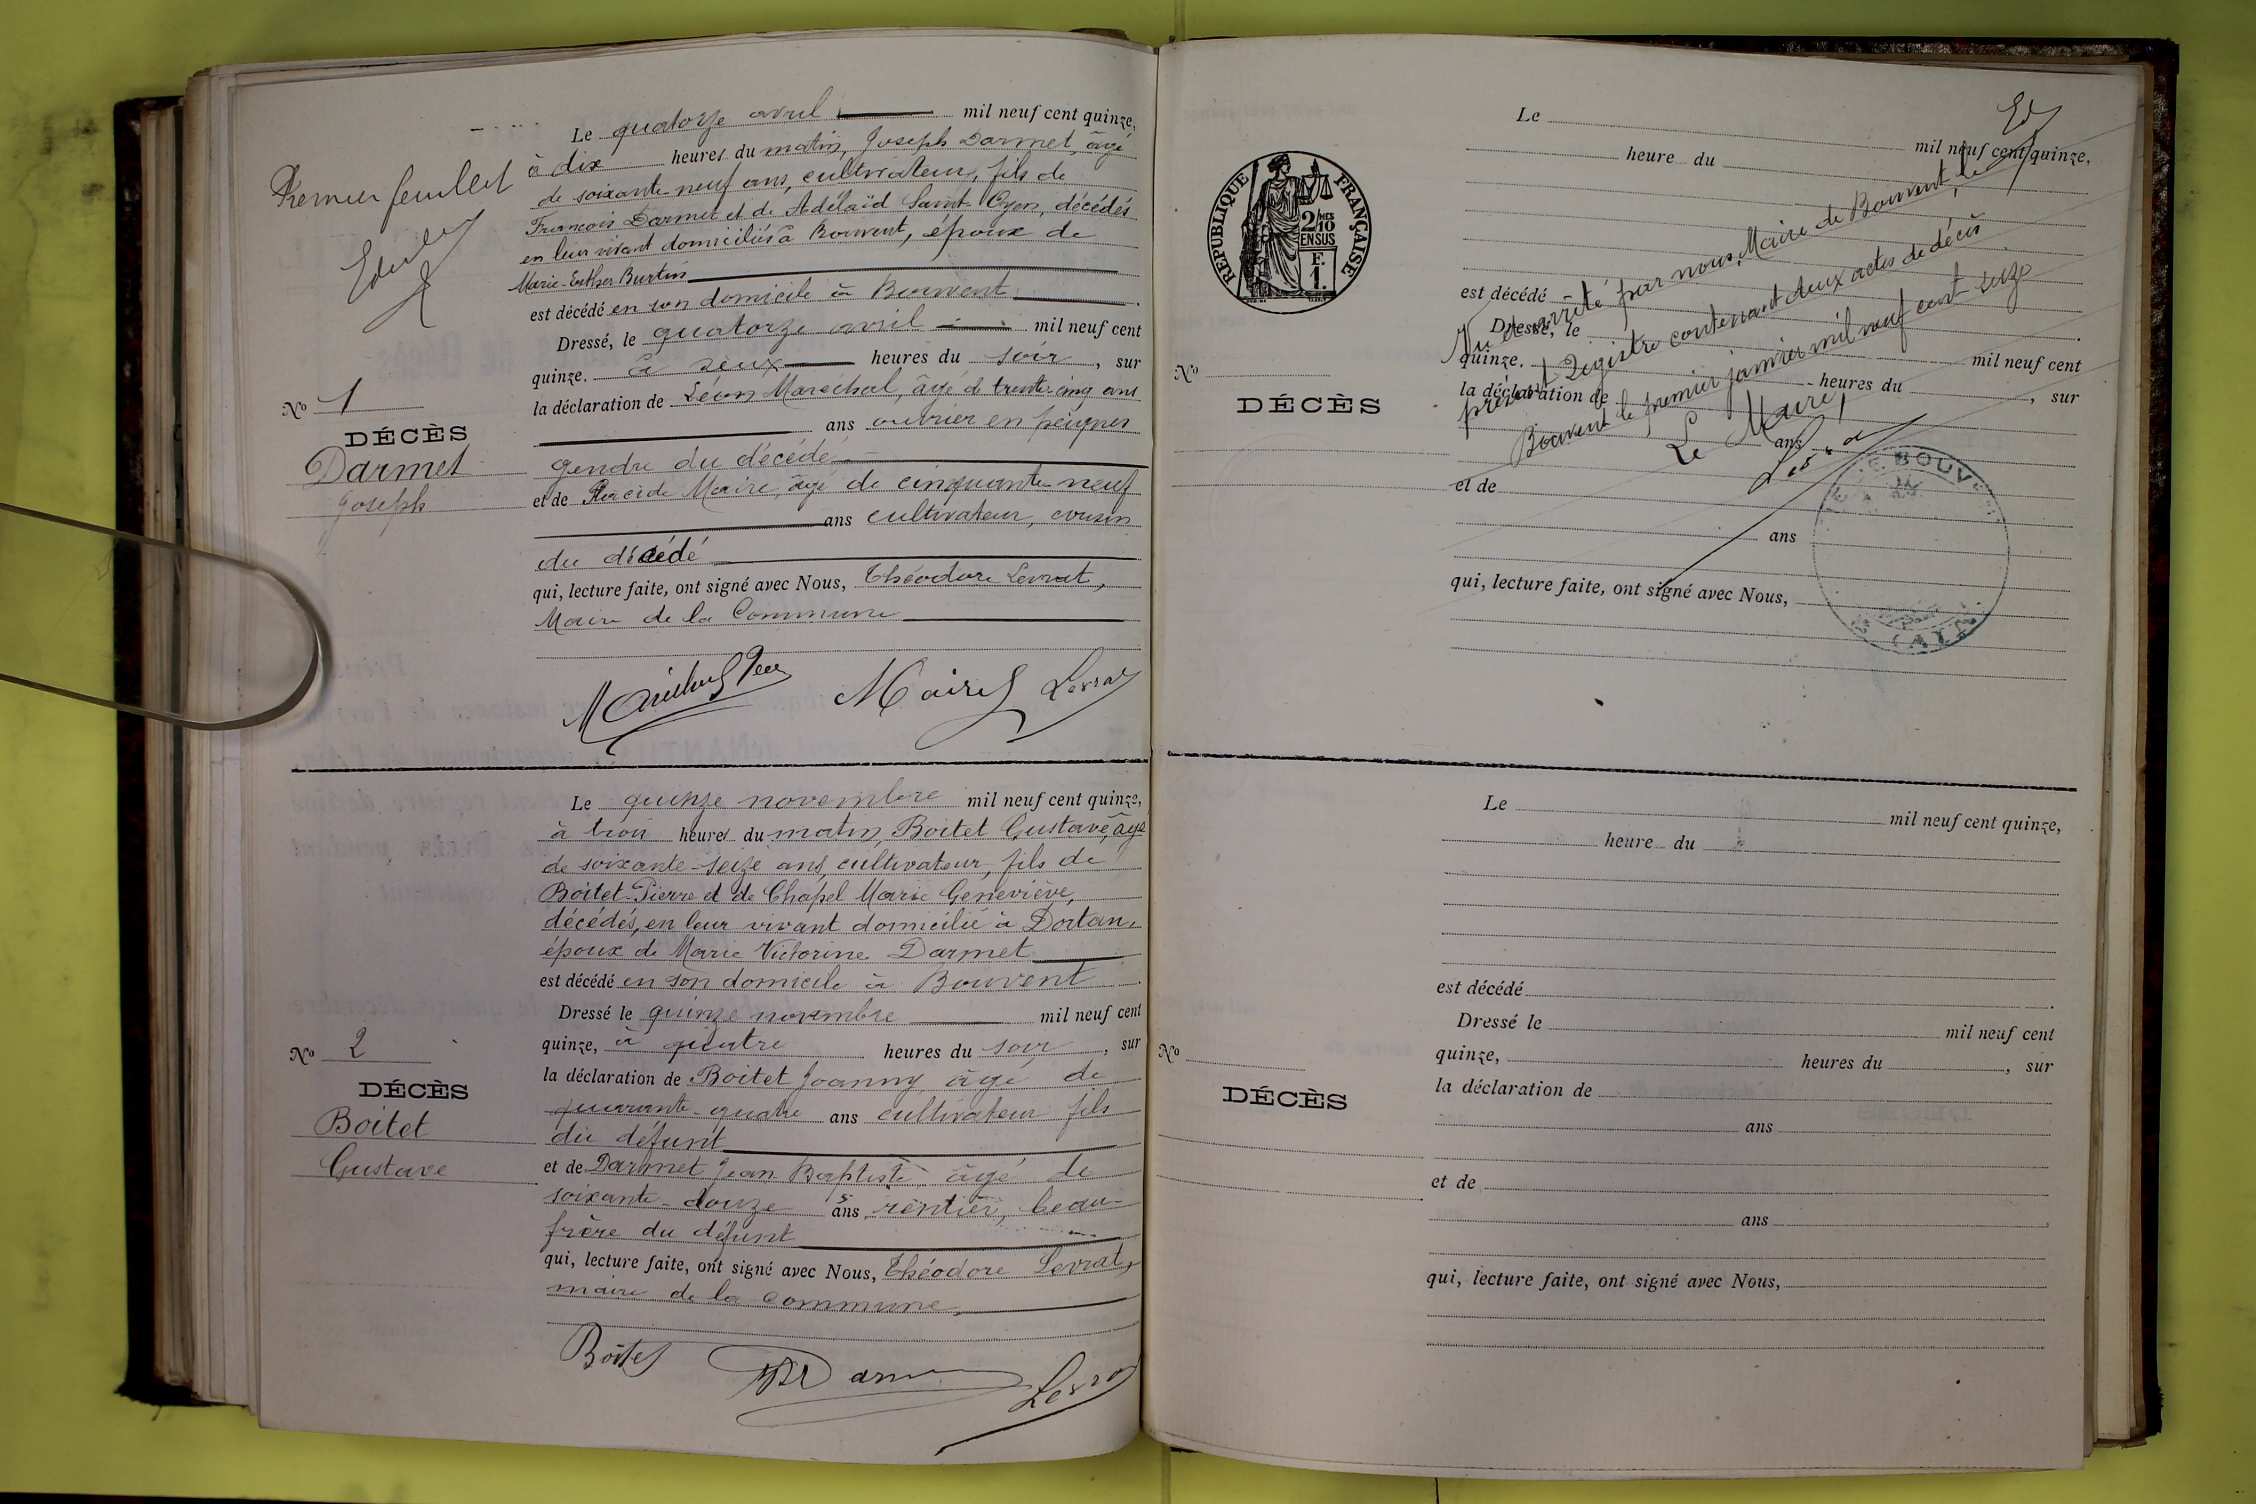 Premier feuillet
Le quatorze avril mil neuf cent quinze,
à dix heures du matin, Joseph Darmet, âgé
de soixante neuf ans, cultivateur, fils de
François Darmet et de Adélaïd Saint-Cyen, décédés
en leur vivant domiciliés à Bouvent, époux de
Marie-Esther Burtin
est décédé en son domicile à Bouvent.
Dressé, le quatorze avril mil neuf cent
quinze. à deux heures du soir, sur
la déclaration de Léon Maréchal, âgé de trente-cinq ans
ans ouvrier en peignes
gendre du décédé
et de Placide Maire, âgé de cinquante-neuf
ans cultivateur, cousin
du décédé
qui, lecture faite, ont signé avec Nous, Théodore Levrat,
Maire de la Commune
No 1
DÉCÈS
Darmet
Joseph
Maire Levrat
Le quinze novembre mil neuf cent quinze,
à trois heures du matin, Boitet Gustave, âgé
de soixante-seize ans, cultivateur, fils de
Boitet Pierre et de Chapel Marie Geneviève,
décédés, en leur vivant domicilié à Dortan,
époux de Marie Victorine Darmet
est décédé en son domicile à Bouvent.
Dressé le quinze novembre mil neuf cent
quinze, à quatre heures du soir, sur
la déclaration de Boitet Joanny âgé de
quarante-quatre ans cultivateur fils
du défunt
et de Darmet Jean Baptiste âgé de
soixante-douze ans, rentier, beau-
frère du défunt
qui, lecture faite, ont signé avec Nous, Théodore Levrat,
maire de la commune,
No 2
DÉCÈS
Boitet
Gustave
Boitet
RÉPUBLIQUE FRANÇAISE
2/10 MES
EN SUS
F.
1.
Le mil neuf cent quinze,
heure du
est décédé
Dressé, le mil neuf cent
quinze. heures du , sur
la déclaration de
ans
et de
ans
qui, lecture faite, ont signé avec Nous,
No
DÉCÈS
Vu et arrêté par nous, Maire de Bouvent, le
présent Registre contenant deux actes de décès
Bouvent le premier janvier mil neuf cent seize
Le Maire,
BOUV
(AIN)
Le mil neuf cent quinze,
heure du
est décédé .
Dressé le mil neuf cent
quinze, heures du , sur
la déclaration de
ans
et de
ans
qui, lecture faite, ont signé avec Nous,
No
DÉCÈS